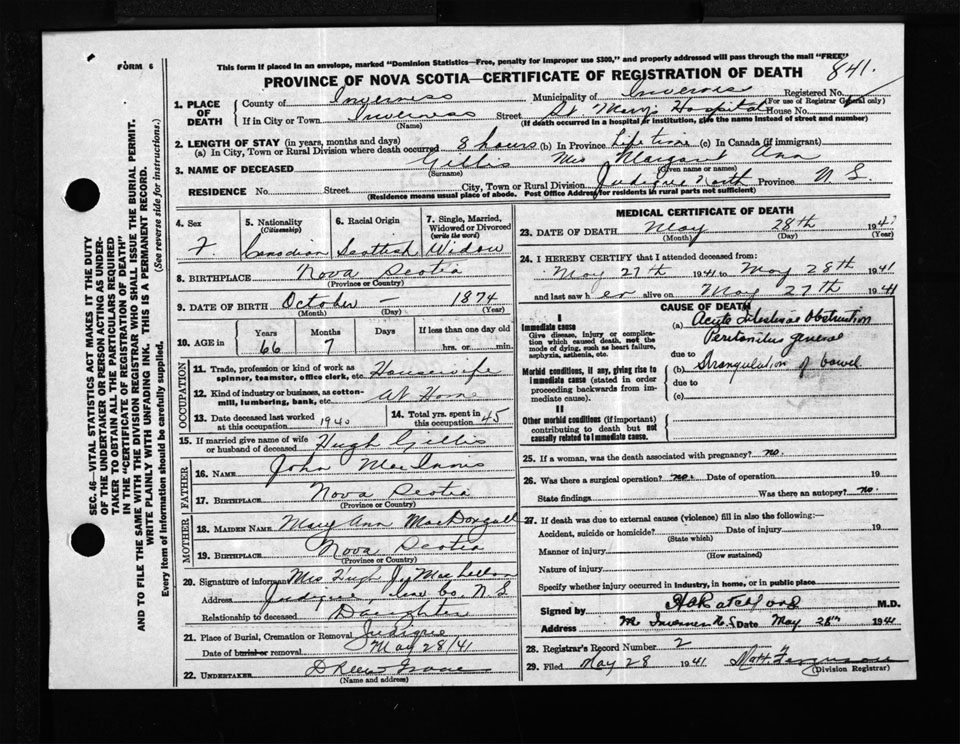 FORM 6
This form if placed in an envelope, marked "Dominion Statistics—Free, penalty for improper use $300," and properly addressed will pass through the mail "FREE"
PROVINCE OF NOVA SCOTIA—CERTIFICATE OF REGISTRATION OF DEATH
841.
1. PLACE OF DEATH
County of Inverness Municipality of Inverness Registered No.
(For use of Registrar General only)
If in City or Town Inverness Street St. Mary's Hospital House No.
(Name) (If death occurred in a hospital or institution, give the name instead of street and number)
2. LENGTH OF STAY (in years, months and days)
(a) In City, Town or Rural Division where death occurred 8 hours (b) In Province Life time (c) In Canada (if immigrant)
3. NAME OF DECEASED Gillis Mrs Margaret Ann
(Surname) (Given name or names)
RESIDENCE No. Street City, Town or Rural Division Judique North Province N. S.
(Residence means usual place of abode. Post Office Address for residents in rural parts not sufficient)
4. Sex
F.
5. Nationality
(Citizenship)
Canadian
6. Racial Origin
Scottish
7. Single, Married, Widowed or Divorced
(write the word)
Widow
8. BIRTHPLACE Nova Scotia
(Province or Country)
9. DATE OF BIRTH October — 1874
(Month) (Day) (Year)
10. AGE in
Years Months Days If less than one day old
66 7 hrs. or min.
OCCUPATION
11. Trade, profession or kind of work as
spinner, teamster, office clerk, etc. Housewife
12. Kind of industry or business, as cotton-
mill, lumbering, bank, etc. At Home
13. Date deceased last worked
at this occupation 1940
14. Total yrs. spent in
this occupation 45
15. If married give name of wife
or husband of deceased Hugh Gillis
FATHER
16. NAME John MacInnis
17. BIRTHPLACE Nova Scotia
(Province or Country)
MOTHER
18. MAIDEN NAME Mary Ann MacDougall
19. BIRTHPLACE Nova Scotia
(Province or Country)
20. Signature of informant Mrs
Address Judique, Inv. Co. N. S.
Relationship to deceased Daughter
21. Place of Burial, Cremation or Removal Judique
Date of burial or removal May 28/41
22. UNDERTAKER
(Name and address)
MEDICAL CERTIFICATE OF DEATH
23. DATE OF DEATH May 28th 194
(Month) (Day) (Year)
24. I HEREBY CERTIFY that I attended deceased from:
May 27th 1941 to May 28th 1941
and last saw her alive on May 27th 1941
CAUSE OF DEATH
I
Immediate cause
Give disease, injury or complication which caused death, not the mode of dying, such as heart failure, asphyxia, asthenia, etc.
(a) Acute Intestinal Obstruction
Peritonitis general
due to
Morbid conditions, if any, giving rise to immediate cause (stated in order proceeding backwards from immediate cause).
(b) Strangulation of bowel
due to
(c)
II
Other morbid conditions (if important) contributing to death but not causally related to immediate cause.
25. If a woman, was the death associated with pregnancy? no.
26. Was there a surgical operation? no. Date of operation 19
State findings Was there an autopsy? no.
27. If death was due to external causes (violence) fill in also the following:—
Accident, suicide or homicide? Date of injury 19
(State which)
Manner of injury
(How sustained)
Nature of injury
Specify whether injury occurred in industry, in home, or in public place
Signed by M.D.
Address Inverness N.S. Date May 28th 1941
28. Registrar's Record Number 2
29. Filed May 28 1941 Ferguson
(Division Registrar)
SEC. 46—VITAL STATISTICS ACT MAKES IT THE DUTY
OF THE UNDERTAKER OR PERSON ACTING AS UNDER-
TAKER TO OBTAIN ALL THE PARTICULARS REQUIRED
IN THE "CERTIFICATE OF REGISTRATION OF DEATH"
AND TO FILE THE SAME WITH THE DIVISION REGISTRAR WHO SHALL ISSUE THE BURIAL PERMIT.
WRITE PLAINLY WITH UNFADING INK. THIS IS A PERMANENT RECORD.
Every item of information should be carefully supplied. (See reverse side for instructions.)